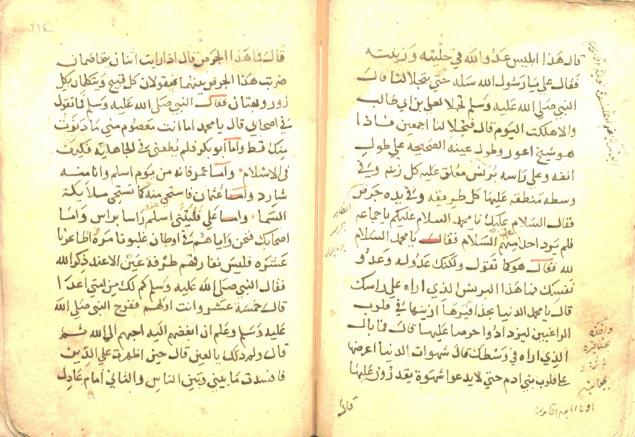 قال هذا ابليس عدو الله في حليته وزينته
فقال علي يا رسول الله سله حتى يتجلا لنا قال
النبي صلى الله عليه وسلم تجلا لعلي بن ابي طالب
والا هلكت اليوم قال فتجلا لنا اجمعين فاذا
هو شيخ اعور وطول عينه الصحيحة على طول
انفه وعلى راسه برنس معلق عليه كل زينة وفي
وسطه منطقة عليها كل طريفة وفي يده جرس
فقال السلام عليك يا محمد السلام عليكم يا جماعة
فلم يرد احد منهم السلام فقال يا محمد السلام
لله فقال هو كما تقول ولكنك عدو له وعدو
نفسك فما هذا البرنس الذي اراه على راسك
قال يا محمد الدنيا بحذافيرها ازينها في قلوب
الراغبين ليزدادوا حرصا عليها قال فما بال
الذي اراه في وسطك قال شهوات الدنيا اعرضها
على قلوب بني ادم حتى لا يدعوا شهوة يقدرون عليها
قال
٢١٤
قال فما هذا الجرس قال اذا رايت اثنان يتخاصمان
ضربت هذا الجرس بينهما فيقولان كل قبيح ويتكلمان بكل
زور وبهتان فقال النبي صلى الله عليه وسلم فما تقول
في اصحابي قال يا محمد اما انت معصوم مني ما دنوت
منك قط واما ابو بكر فلم يطعني في الجاهلية فكيف
في الاسلام واما عمر فانه من يوم اسلم وانا منه
شارد واما عثمان فاستحي منه كما تستحي ملائكة
السما واما علي فليتني اسلم منه راسا براس واما
اصحابك فنحن واياهم في اوطان غلبونا مرة اطاعونا
عشرة فليس نفارقهم طرفة عين الا عند ذكر الله
فقال النبي صلى الله عليه وسلم كم لك من امتي اعدا
قال خمسة عشر وانت اولهم ففرح النبي صلى الله
عليه وسلم وعلم ان ابغضهم اليه احبهم الى الله ثم
قال ولم ذلك يا لعين قال حين اظهرت علي الدين
فافسدت ما بيني وبين الناس والثاني امام عادل